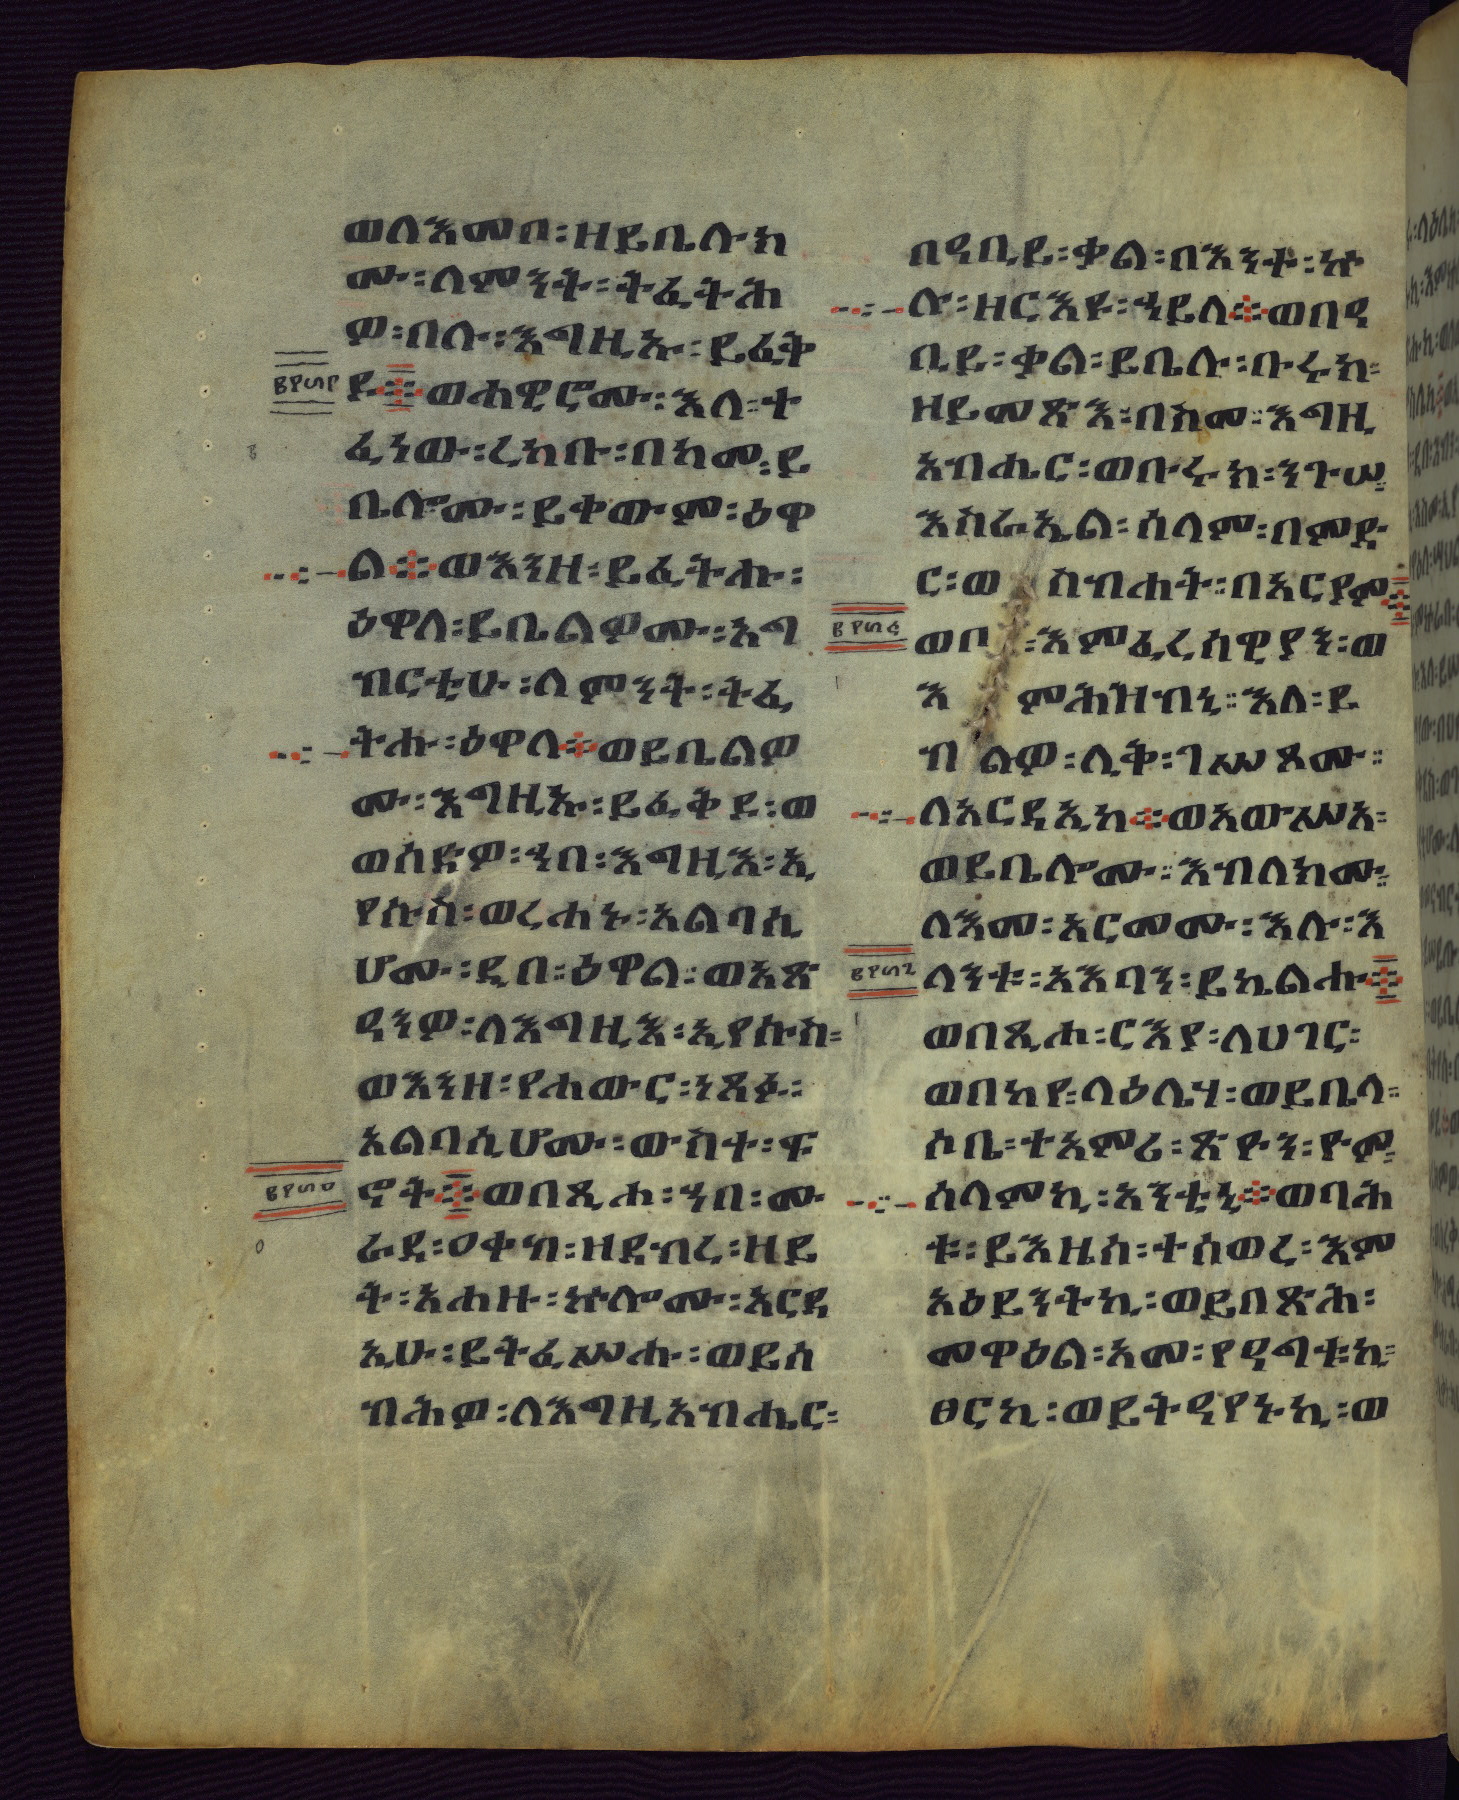 ወለእመቦ፡ዘይቤሉክ
ሙ፡ለምንት፡ትፌትሕ
ዎ፡በሉ፡እግዚኡ፡ይፈቅ
ዶ፨ወሐዊሮሙ፡እለ፡ተ
ፈነው፡ረከቡ፡በከመ፡ይ
ቤሎሙ፡ይቀውም፡ዕዋ
ል፨ወእንዘ፡ይፈትሑ፡
ዕዋለ፡ይቤልዎሙ፡አግ
ብርቲሁ፡ለምንት፡ትፌ
ትሑ፡ዕዋለ፨ወይቤልዎ
ሙ፡እግዚኡ፡ይፈቅዶ፡ወ
ወሰድዎ፡ኀበ፡እግዚእ፡ኢ
የሱስ፡ወረሐኑ፡አልባሲ
ሆሙ፡ዲበ፡ዕዋል፡ወአጽ
ዓንዎ፡ለእግዚእ፡ኢየሱስ፡
ወእንዘ፡የሐውር፡ነጸፉ፡
አልባሲሆሙ፡ውስተ፡ፍ
ኖት፨ወበጺሖ፡ኀበ፡ሙ
ራደ፡ዐቀብ፡ዘደብረ፡ዘይ
ት፡አሐዙ፡ኵሎሙ፡አርዳ
ኢሁ፡ይትፌሥሑ፡ወይሰ
ብሕዎ፡ለእግዚአብሔር፡
በዓቢይ፡ቃል፡በእንተ፡ኵ
ሉ፡ዘርእዩ፡ኀይለ፨ወበዓ
ቢይ፡ቃል፡ይቤሉ፡ቡሩክ፡
ዘይመጽእ፡በስመ፡እግዚ
አብሔር፡ወቡሩክ፡ንጉሠ፡
እስራኤል፡ሰላም፡በምድ
ር፡ወስብሐት፡በአርያም፨
ወቦ፡እምፈሪሳዊያን፡ወ
እምሕዝብኒ፡እለ፡ይ
ብልዎ፡ሊቅ፡ገሥጾሙ፡
ለአርዳኢከ፨ወአውሥአ፡
ወይቤሎሙ፡እብለክሙ፡
ለእመ፡አርመሙ፡እሉ፡እ
ላንቱ፡አእባን፡ይኬልሑ፨
ወበጺሖ፡ርእያ፡ለሀገር፡
ወበከየ፡ላዕሌሃ፡ወይቤላ፡
ሶቤ፡ተአምሪ፡ጽዮን፡ዮም፡
ሰላምኪ፡አንቲኒ፨ወባሕ
ቱ፡ይእዜሰ፡ተሰወረ፡እም
አዕይንትኪ፡ወይበጽሕ፡
መዋዕል፡አመ፡የዓግቱኪ፡
ፀርኪ፡ወይትዓየኑኪ፡ወ